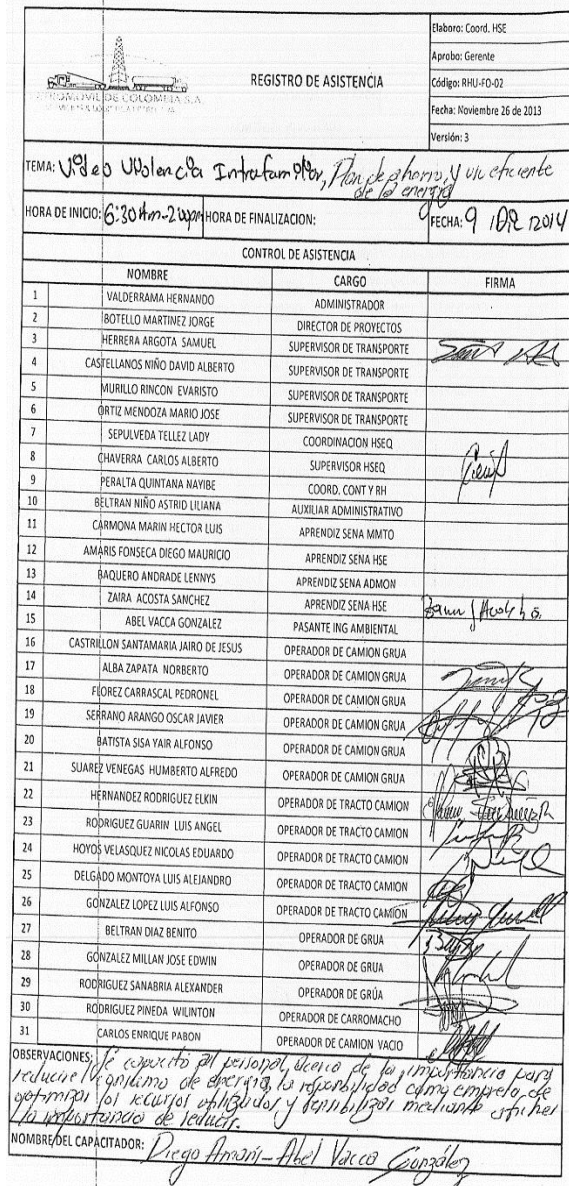 Elaboro: Coord. HSE
Aprobo: Gerente
REGISTRO DE ASISTENCIA
Código: RHU-FO-02
Fecha: Noviembre 26 de 2013
Versión: 3
TEMA: Video Violencia Intrafamiliar, Plan de ahorro, y uso eficiente
de la energia
HORA DE INICIO: 6:30 Am - 2:00pm HORA DE FINALIZACION: FECHA: 9 DIC 2014
CONTROL DE ASISTENCIA
NOMBRE CARGO FIRMA
1 VALDERRAMA HERNANDO ADMINISTRADOR
2 BOTELLO MARTINEZ JORGE DIRECTOR DE PROYECTOS
3 HERRERA ARGOTA SAMUEL SUPERVISOR DE TRANSPORTE
4 CASTELLANOS NIÑO DAVID ALBERTO SUPERVISOR DE TRANSPORTE
5 MURILLO RINCON EVARISTO SUPERVISOR DE TRANSPORTE
6 ORTIZ MENDOZA MARIO JOSE SUPERVISOR DE TRANSPORTE
7 SEPULVEDA TELLEZ LADY COORDINACION HSEQ
8 CHAVERRA CARLOS ALBERTO SUPERVISOR HSEQ
9 PERALTA QUINTANA NAYIBE COORD. CONT Y RH
10 BELTRAN NIÑO ASTRID LILIANA AUXILIAR ADMINISTRATIVO
11 CARMONA MARIN HECTOR LUIS APRENDIZ SENA MMTO
12 AMARIS FONSECA DIEGO MAURICIO APRENDIZ SENA HSE
13 BAQUERO ANDRADE LENNYS APRENDIZ SENA ADMON
14 ZAIRA ACOSTA SANCHEZ APRENDIZ SENA HSE
15 ABEL VACCA GONZALEZ PASANTE ING AMBIENTAL
16 CASTRILLON SANTAMARIA JAIRO DE JESUS OPERADOR DE CAMION GRUA
17 ALBA ZAPATA NORBERTO OPERADOR DE CAMION GRUA
18 FLOREZ CARRASCAL PEDRONEL OPERADOR DE CAMION GRUA
19 SERRANO ARANGO OSCAR JAVIER OPERADOR DE CAMION GRUA
20 BATISTA SISA YAIR ALFONSO OPERADOR DE CAMION GRUA
21 SUAREZ VENEGAS HUMBERTO ALFREDO OPERADOR DE CAMION GRUA
22 HERNANDEZ RODRIGUEZ ELKIN OPERADOR DE TRACTO CAMION
23 RODRIGUEZ GUARIN LUIS ANGEL OPERADOR DE TRACTO CAMION
24 HOYOS VELASQUEZ NICOLAS EDUARDO OPERADOR DE TRACTO CAMION
25 DELGADO MONTOYA LUIS ALEJANDRO OPERADOR DE TRACTO CAMION
26 GONZALEZ LOPEZ LUIS ALFONSO OPERADOR DE TRACTO CAMION
27 BELTRAN DIAZ BENITO OPERADOR DE GRUA
28 GONZALEZ MILLAN JOSE EDWIN OPERADOR DE GRUA
29 RODRIGUEZ SANABRIA ALEXANDER OPERADOR DE GRÚA
30 RODRIGUEZ PINEDA WILINTON OPERADOR DE CARROMACHO
31 CARLOS ENRIQUE PABON OPERADOR DE CAMION VACIO
OBSERVACIONES: Se capacito al personal acerca de la importancia para
reducir de energia, la como de
optimizar los recursos y sensibilizar mediante
la importancia de reducir.
NOMBRE DEL CAPACITADOR: Diego Amaris - Abel Vacca González